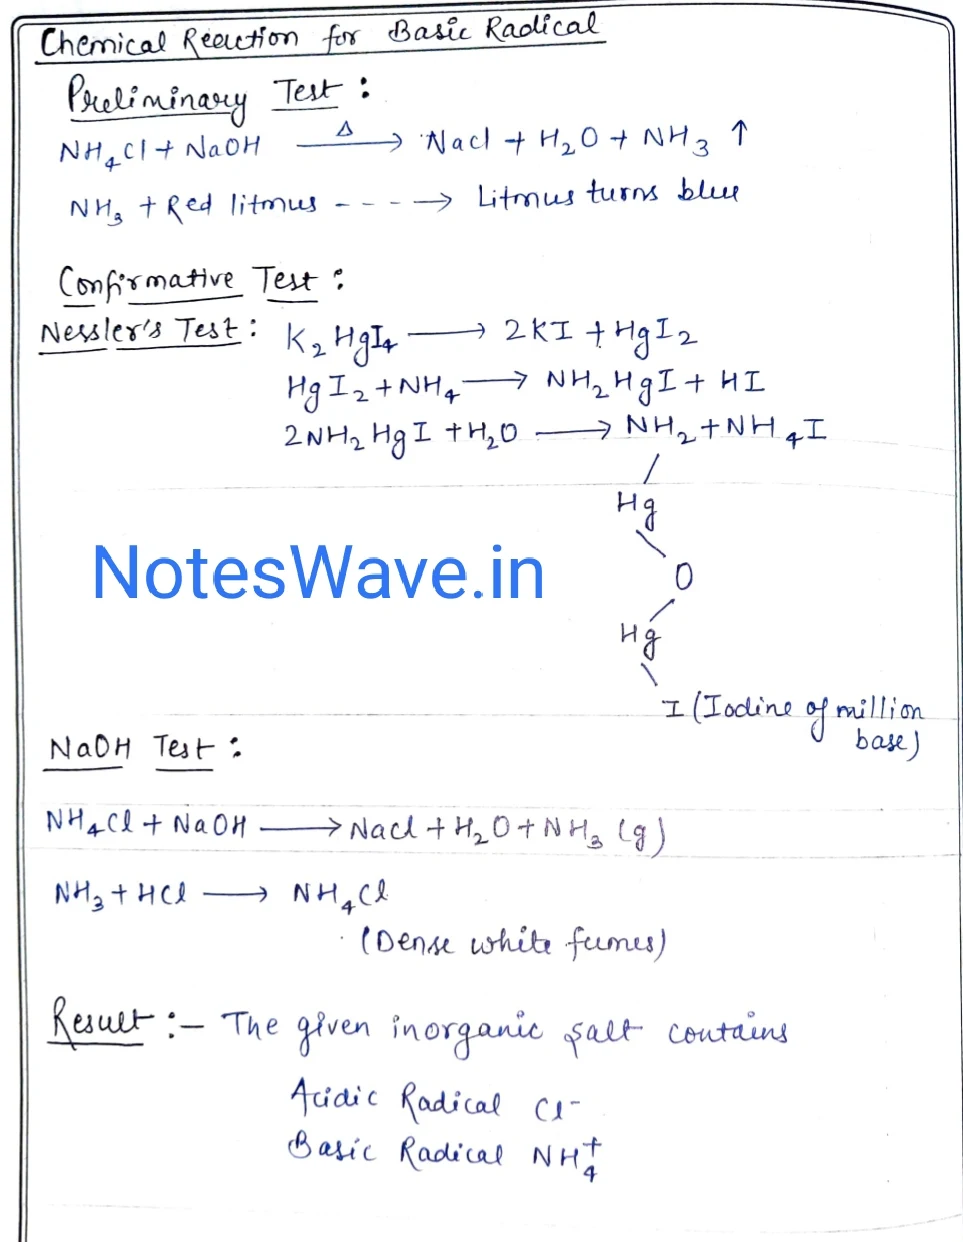 Chemical Reaction for Basic Radical
Preliminary Test :
NH₄Cl + NaOH —Δ→ Nacl + H₂O + NH₃ ↑
NH₃ + Red litmus - - - -> Litmus turns blue
Confirmative Test :
Nessler's Test : K₂HgI₄ ⟶ 2KI + HgI₂
HgI₂ + NH₄ ⟶ NH₂HgI + HI
2NH₂HgI + H₂O ⟶ NH₂ + NH₄I
/
Hg
\
O
/
Hg
\
I (Iodine of million
base)
NotesWave.in
NaOH Test :
NH₄Cl + NaOH ⟶ Nacl + H₂O + NH₃ (g)
NH₃ + HCl ⟶ NH₄Cl
(Dense white fumes)
Result :– The given inorganic salt contains
Acidic Radical Cl⁻
Basic Radical NH₄⁺